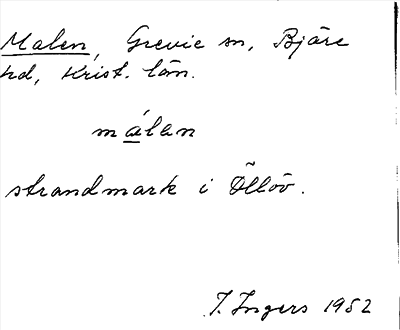 Malen, Grevie sn, Bjäre
hd, Krist. län.
málan
strandmark i Ölløv.
I. Ingers 1952